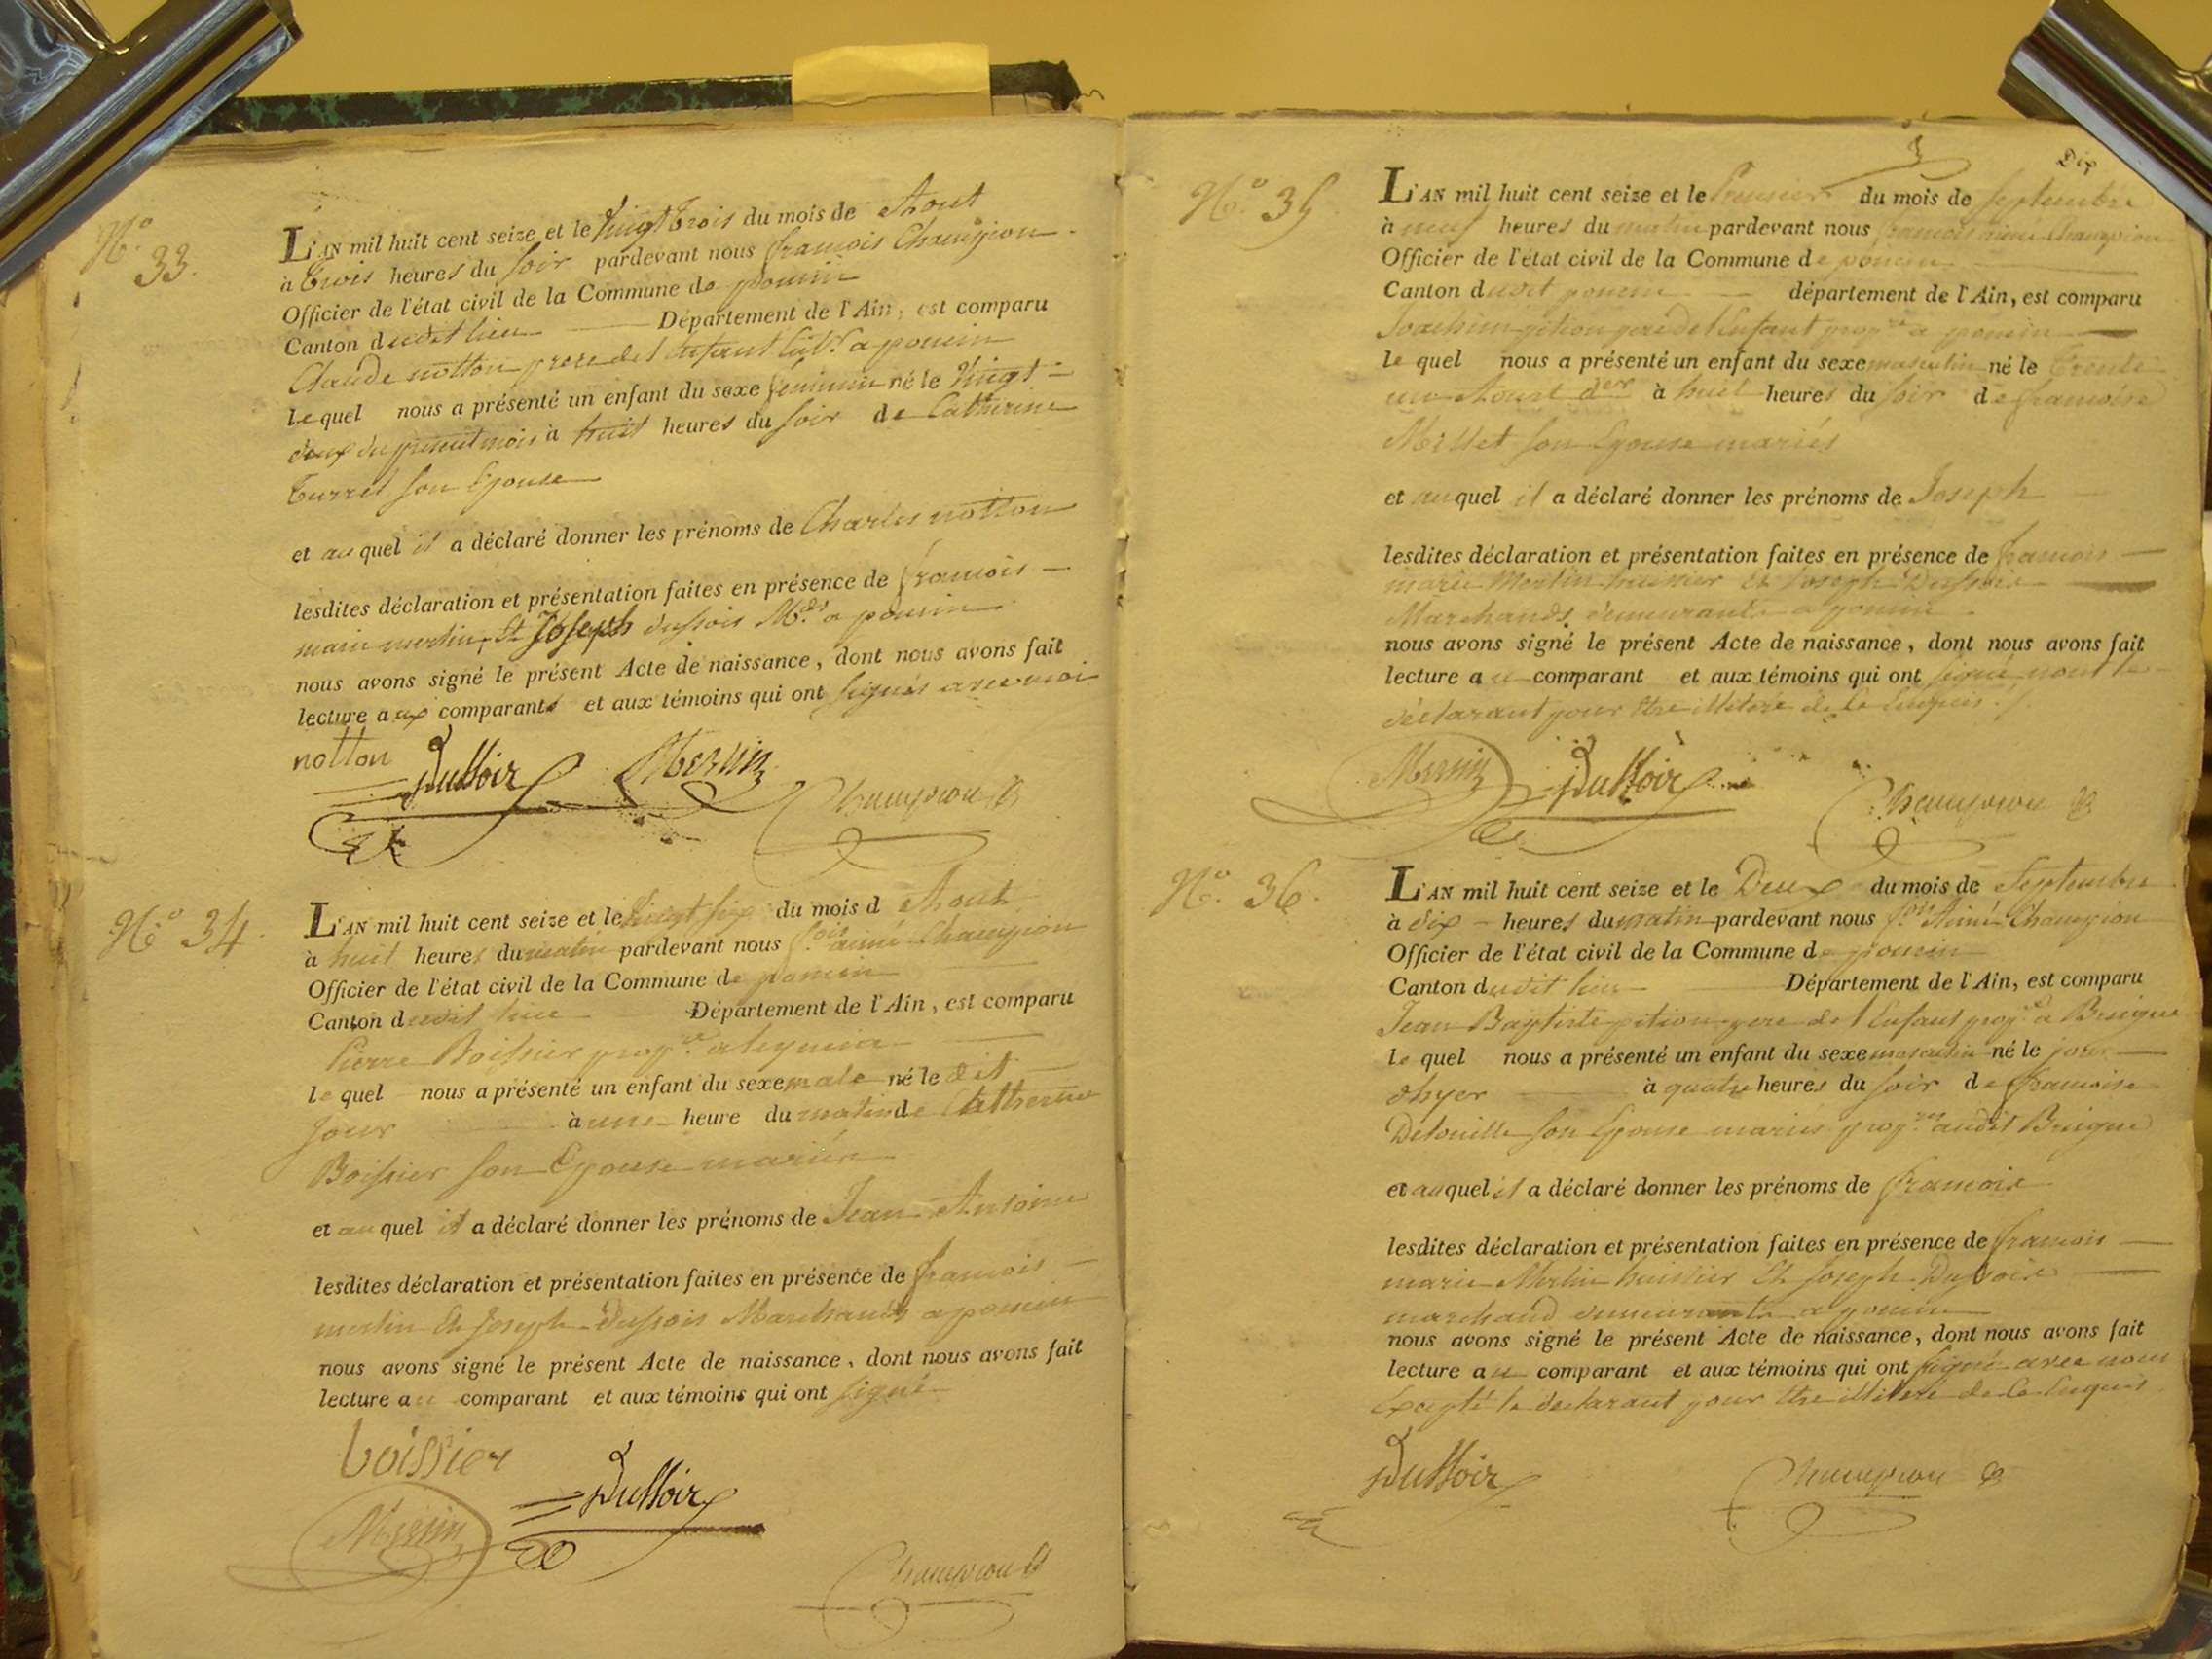 N.o 33.
L'AN mil huit cent seize et le vingt trois du mois de Aout
à trois heures du soir pardevant nous françois Champion
Officier de l'état civil de la Commune de poncin
Canton dudit lieu Département de l'Ain, est comparu
Claude notton pere de l'enfant a poncin
le quel nous a présenté un enfant du sexe feminin né le vingt
deux du present mois à huit heures du soir de Catherine
son Epouse
et au quel il a déclaré donner les prénoms de Charles notton
lesdites déclaration et présentation faites en présence de françois
marie merlin, Et Joseph dussoir M.ds a poncin
nous avons signé le présent Acte de naissance, dont nous avons fait
lecture aux comparants et aux témoins qui ont signés avec moi
notton Dussoir Merlin
Champion
N.o 34.
L'AN mil huit cent seize et le vingt six du mois d Aout
à huit heures du matin pardevant nous f.ois aimé Champion
Officier de l'état civil de la Commune de poncin
Canton dudit lieu Département de l'Ain, est comparu
Pierre Boissier prop.re
le quel nous a présenté un enfant du sexe male né le dit
jour à une heure du matin de Catherine
Boissier son Epouse mariés
et au quel il a déclaré donner les prénoms de Jean Antoine
lesdites déclaration et présentation faites en présence de françois
merlin Et Joseph Dussoir Marchands a poncin
nous avons signé le présent Acte de naissance, dont nous avons fait
lecture au comparant et aux témoins qui ont signé
boissier
Merlin Dussoir
Champion
Dix
N.o 35.
L'AN mil huit cent seize et le Premier du mois de Septembre
à neuf heures du matin pardevant nous françois aimé Champion
Officier de l'état civil de la Commune de poncin
Canton dudit poncin département de l'Ain, est comparu
Joachim pition pere de l'Enfant prop.re a poncin
le quel nous a présenté un enfant du sexe masculin né le trente
un Aoust d.er à huit heures du soir de françoise
Millet son Epouse mariés
et auquel il a déclaré donner les prénoms de Joseph
lesdites déclaration et présentation faites en présence de françois
marie Merlin huissier Et Joseph Dussoir
Marchands demeurants a poncin
nous avons signé le présent Acte de naissance, dont nous avons fait
lecture au comparant et aux témoins qui ont signé non le
déclarant pour être illiteré de ce Enquis./.
Merlin Dussoir
Champion
N.o 36.
L'AN mil huit cent seize et le Deux du mois de Septembre
à dix heures du matin pardevant nous f.ois Aimé Champion
Officier de l'état civil de la Commune de poncin
Canton dudit lieu Département de l'Ain, est comparu
Jean Baptiste pition pere de l'Enfant prop.re a
le quel nous a présenté un enfant du sexe masculin né le jour
d'hyer à quatre heures du soir de françoise
son Epouse mariés prop.res audit
et auquel il a déclaré donner les prénoms de françois
lesdites déclaration et présentation faites en présence de françois
marie Merlin huissier Et Joseph Dussoir
marchand demeurants a poncin
nous avons signé le présent Acte de naissance, dont nous avons fait
lecture au comparant et aux témoins qui ont signé avec nous
Excepté le déclarant pour être illiteré de ce Enquis
Dussoir Champion